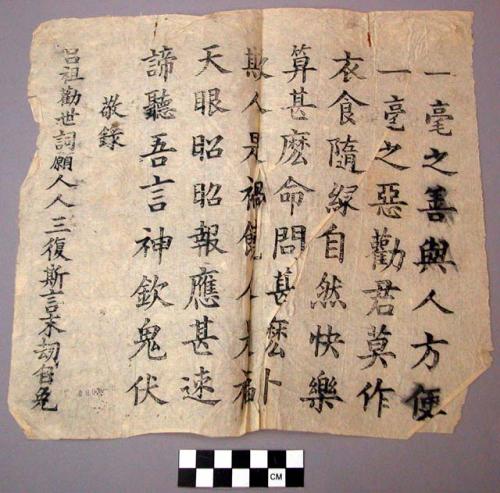 一毫之善與人方便
一毫之惡勸君莫作
衣食隨緣自然快樂
算甚麽命問甚麽卜
欺人是禍饒人是福
天眼昭昭報應甚速
諦聽吾言神欽鬼伏
敬錄
呂祖勸世詞願人人三復斯言末劫自免